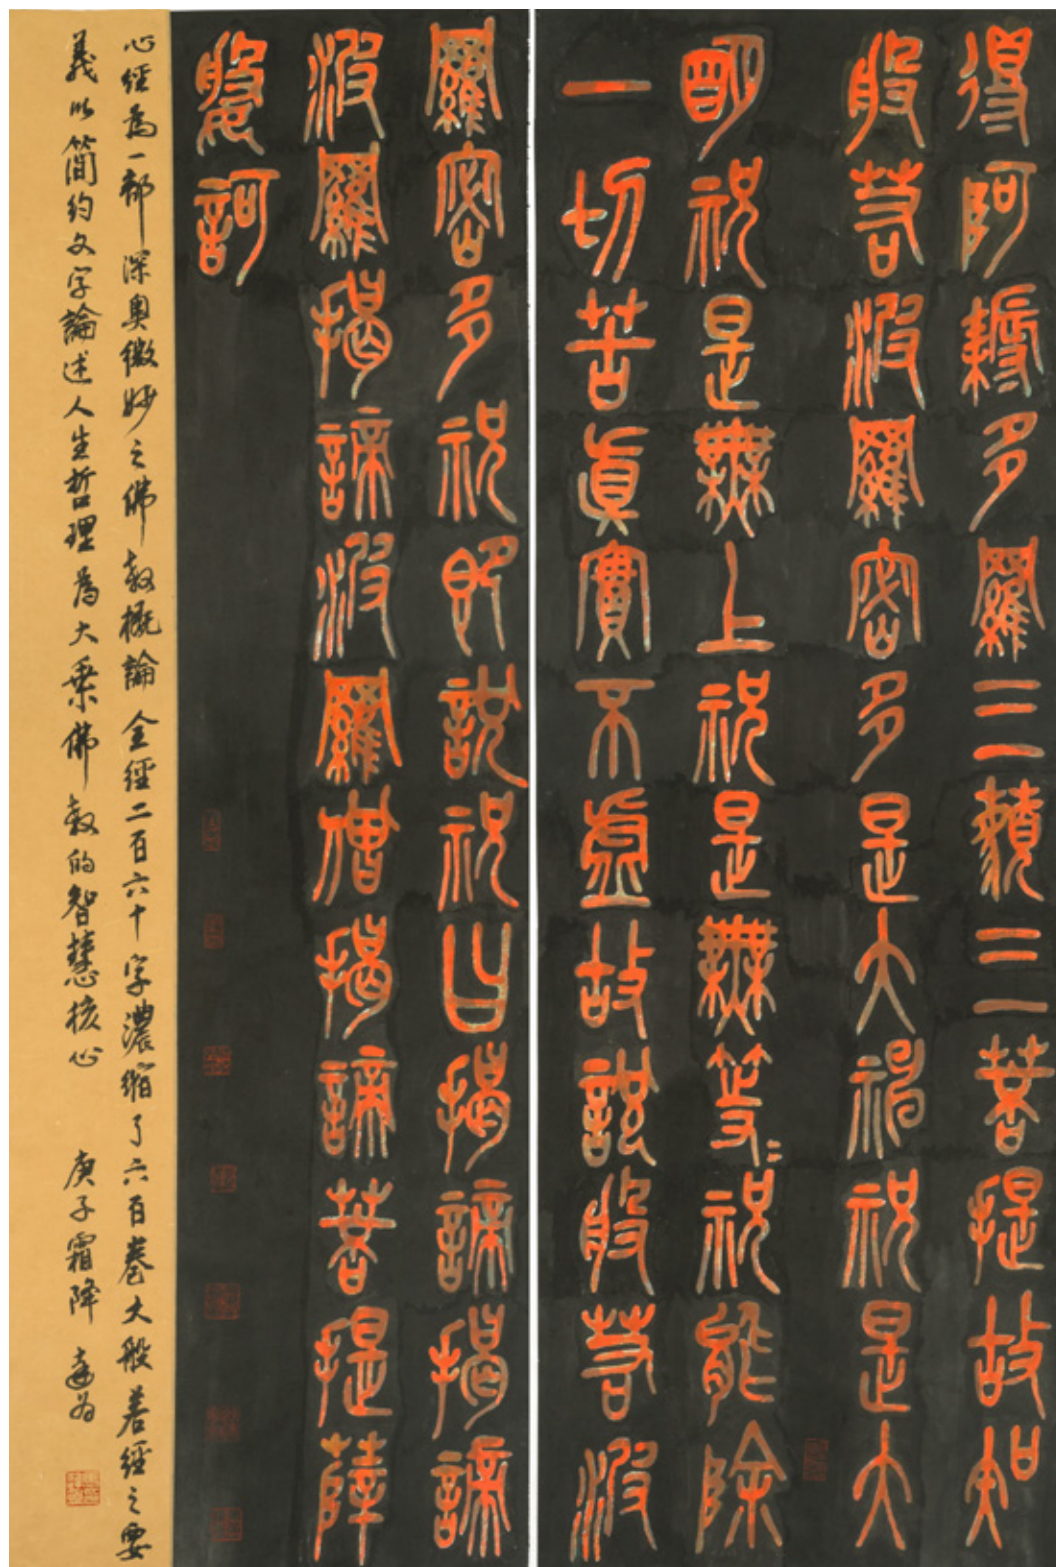 得阿耨多羅三藐三菩提故知
般若波羅密多是大神祝是大
朙祝是無上祝是無等〻祝能除
一切苦真實不虛故說般若波
羅密多祝即說祝曰揭諦揭諦
波羅揭諦波羅僧揭諦菩提薩
婆訶
心經為一部深奧微妙之佛教概論全經二百六十字濃縮了六百卷大般若經之要
義以簡約文字論述人生哲理為大乘佛教的智慧核心 庚子霜降